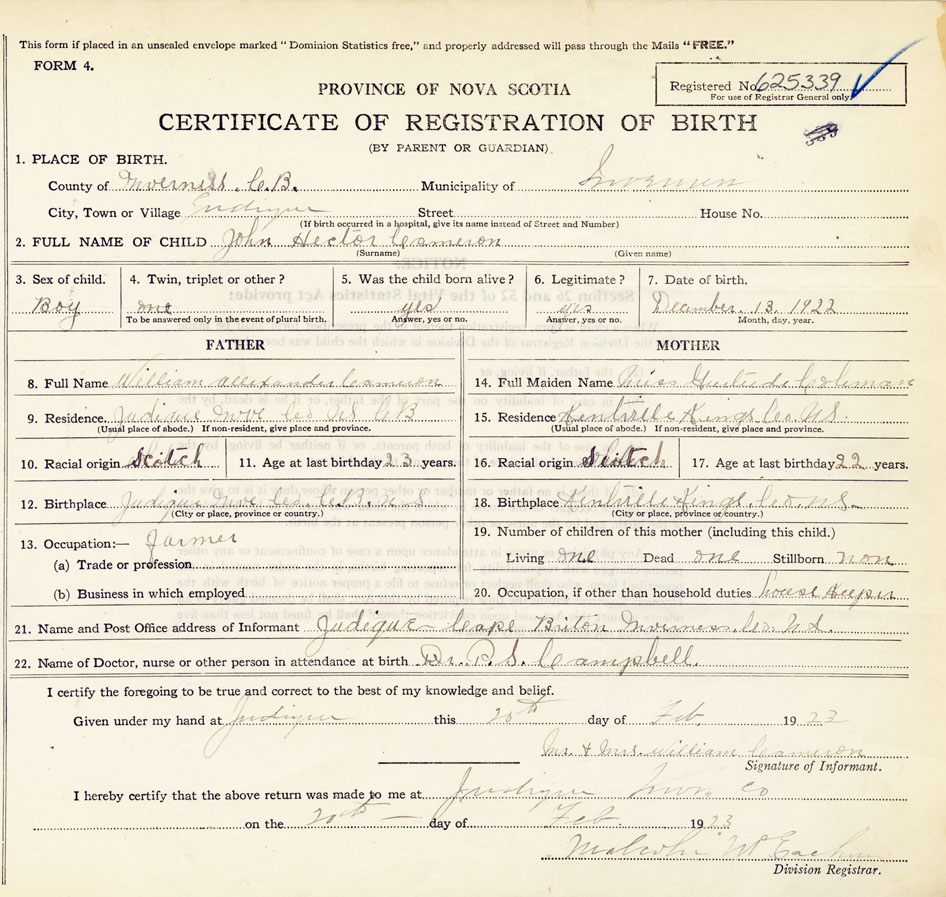 This form if placed in an unsealed envelope marked "Dominion Statistics free," and properly addressed will pass through the Mails "FREE."
FORM 4.
Registered No. 625339
For use of Registrar General only.
PROVINCE OF NOVA SCOTIA
CERTIFICATE OF REGISTRATION OF BIRTH
(BY PARENT OR GUARDIAN)
1. PLACE OF BIRTH.
County of Inverness. C.B. Municipality of Inverness
City, Town or Village Judique Street House No.
(If birth occurred in a hospital, give its name instead of Street and Number)
2. FULL NAME OF CHILD John Hector Cameron
(Surname) (Given name)
3. Sex of child. 4. Twin, triplet or other? 5. Was the child born alive? 6. Legitimate? 7. Date of birth.
Boy one yes yes December. 13. 1922
To be answered only in the event of plural birth. Answer, yes or no. Answer, yes or no. Month, day, year.
FATHER MOTHER
8. Full Name William Allexander Cameron 14. Full Maiden Name Miss Gertrude Coleman
9. Residence Judique Inve Co NS CB 15. Residence Kentville Kings. Co. NS.
(Usual place of abode.) If non-resident, give place and province. (Usual place of abode.) If non-resident, give place and province.
10. Racial origin Scotch 11. Age at last birthday 23 years. 16. Racial origin Scotch 17. Age at last birthday 22 years.
12. Birthplace Judique Inve Co. C.B. N S 18. Birthplace Kentville Kings. Co. NS.
(City or place, province or country.) (City or place, province or country.)
13. Occupation:— Farmer 19. Number of children of this mother (including this child.)
(a) Trade or profession Living one Dead one Stillborn non
(b) Business in which employed 20. Occupation, if other than household duties House Keeper
21. Name and Post Office address of Informant Judique — Cape Briton Inverness. Co. N.S.
22. Name of Doctor, nurse or other person in attendance at birth Dr. P. S. Campbell.
I certify the foregoing to be true and correct to the best of my knowledge and belief.
Given under my hand at Judique this 20th day of Feb. 1923
Mr. & Mrs. William Cameron
Signature of Informant.
I hereby certify that the above return was made to me at Judique Inver Co
on the 20th — day of Feb. 1923
Malcolm McEachern
Division Registrar.